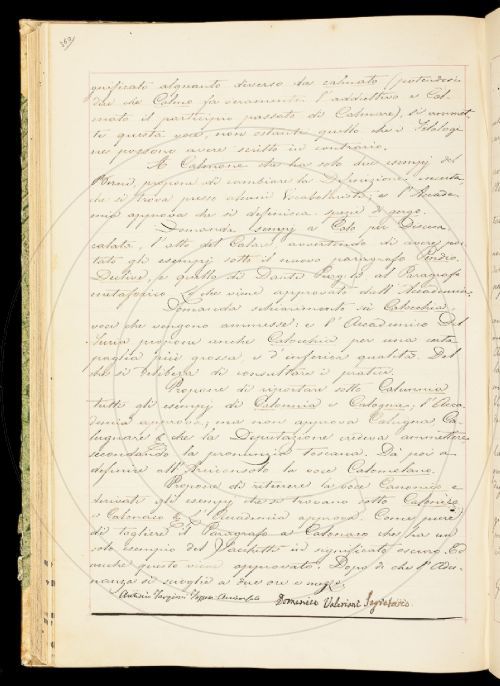 gnificato alquanto diverso da calmato (potendosi
dire che Calmo fa veramente l'addiettivo e Cal-
mato il participio passato di Calmare), si ammet-
te questa voce, non ostante quello che i Filologi
ne possono avere scritto in contrario.
A Calmone che ha solo due esempj del
propone di cambiare la Definizione
che si trova presso alcuni Vocabolaristi; e l'Accade-
mia approva che si definisca
Domanda esempj a Calo per Discesa
calata, l'atto del Calare, avvertendo di avere por-
tato gli esempj sotto il nuovo paragrafo Pendio,
Declive, e quello di Dante Purg. al Paragrafo
metaforico. Il che viene approvato dall'Accademia.
Domanda schiarimento su Calocchia,
voci che vengono ammesse: e l'Accademico Del
Furia propone anche Calocchia per una certa
paglia più grossa, e d'inferior qualità. Del
che si delibera di consultare i pratici.
Propone di riportare sotto Calunnia
tutti gli esempj di Calonnia e Calogna; l'Acca-
demia approva; ma non approva Calugna, Ca-
lugnare &c che la Deputazione credeva ammettere
secondando la pronunzia toscana. Dà poi a
definire all'Arciconsolo la voce Calomelano.
Propone di ritirare la voce Canonico e
derivati gli esempj che si trovano sotto Calonico
e Calonaco &c, l'Accademia approva. Come pure
di togliere il Paragrafo a Calonaco che ha un
solo esempio del Sacchetti in significato oscuro. Ed
anche questo viene approvato. Dopo di che l'Adu-
nanza si scioglie a due ore e mezzo.
Domenico Valeriani Segretario